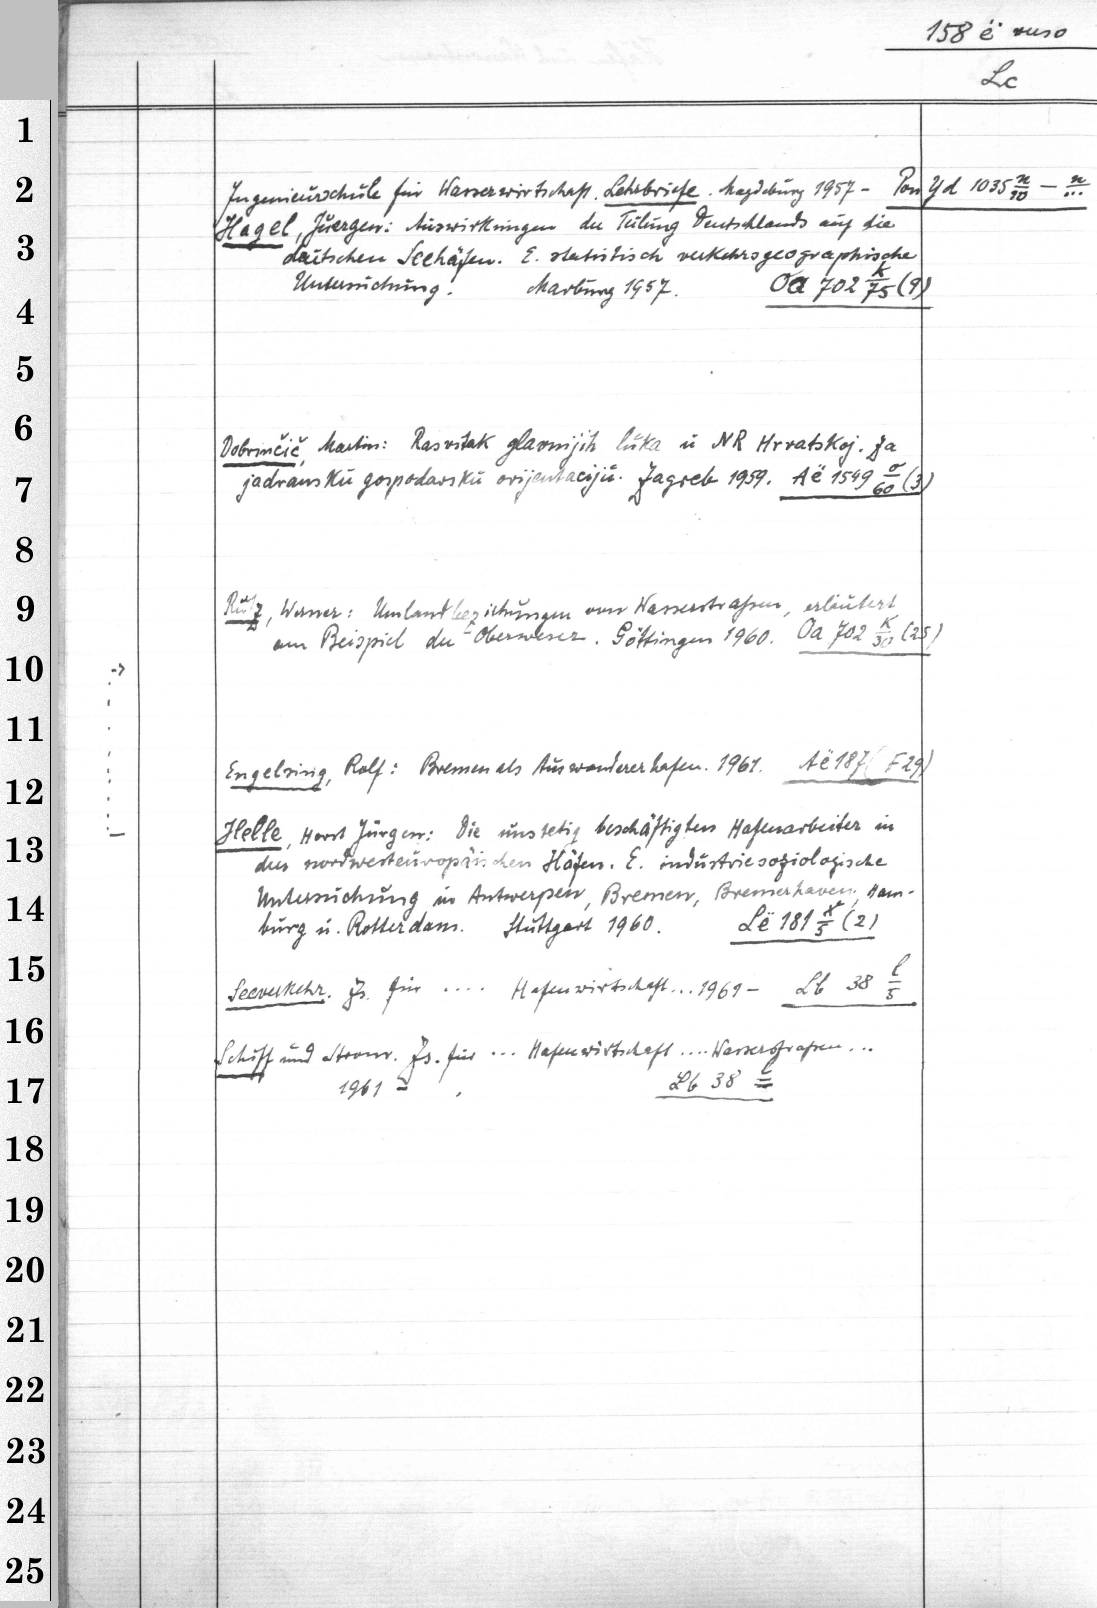 158 ë
Lc
1
2
3
4
5
6
7
8
9
10
11
12
13
14
15
16
17
18
19
20
21
22
23
24
25
Ingenieurschule für Wasserwirtschaft. Lehrbriefe. Magdeburg 1957 - Pon Yd 1035 n/10 - n/...
Hagel, Jürgen: Auswirkungen der Teilung Deutschlands auf die
deutschen Seehäfen. E. statistisch verkehrsgeographische
Untersuchung. Marburg 1957. Oa 702 k/75 (9)
Dobrinčić, Martin: Rasvitak glavnijih luka u NR Hrvatskoj. Za
jadransku gospodarsku orijentaciju. Zagreb 1959. Aë 1549 o/60 (3)
Rutz, Werner: Umlandbeziehungen von Wasserstraßen, erläutert
am Beispiel der Oberweser. Göttingen 1960. Oa 702 k/30 (25)
Engelsing, Rolf: Bremen als Auswandererhafen. 1961. Aë 187 (F 29)
Helle, Horst Jürgen: Die unstetig beschäftigten Hafenarbeiter in
den nordwesteuropäischen Häfen. E. industriesoziologische
Untersuchung in Antwerpen, Bremen, Bremerhaven, Ham-
burg u. Rotterdam. Stuttgart 1960. Lë 181 x/5 (2)
Seeverkehr. Zs. für .... Hafenwirtschaft... 1961 - Lb 38 l/5
Schiff und Strom. Zs. für ... Hafenwirtschaft .... Wasserstraßen ...
1961 - Lb 38